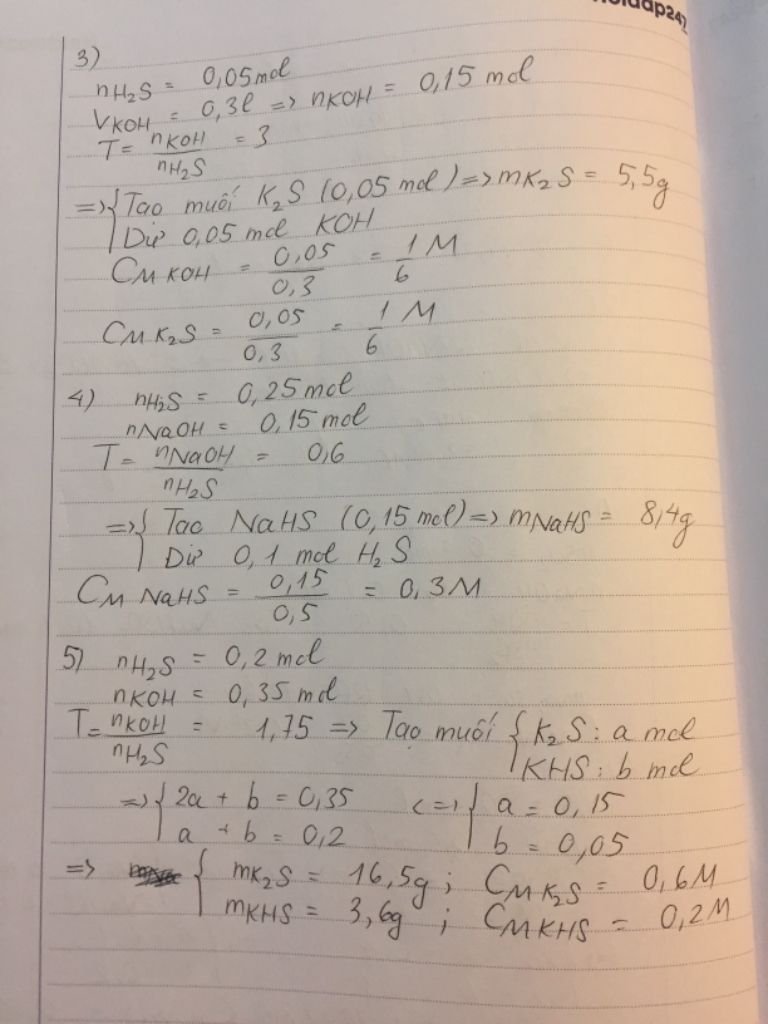 hoidap247
3)
nH₂S = 0,05mol
VKOH = 0,3l => nKOH = 0,15 mol
T = nKOH / nH₂S = 3
=> { Tạo muối K₂S (0,05 mol) => mK₂S = 5,5g
Dư 0,05 mol KOH
CM KOH = 0,05 / 0,3 = 1/6 M
CM K₂S = 0,05 / 0,3 = 1/6 M
4) nH₂S = 0,25 mol
nNaOH = 0,15 mol
T = nNaOH / nH₂S = 0,6
=> { Tạo NaHS (0,15 mol) => mNaHS = 8,4g
Dư 0,1 mol H₂S
CM NaHS = 0,15 / 0,5 = 0,3M
5) nH₂S = 0,2 mol
nKOH = 0,35 mol
T = nKOH / nH₂S = 1,75 => Tạo muối { K₂S : a mol
KHS : b mol
=> { 2a + b = 0,35 <=> { a = 0,15
a + b = 0,2 b = 0,05
=> { mK₂S = 16,5g ; CM K₂S = 0,6M
mKHS = 3,6g ; CM KHS = 0,2M